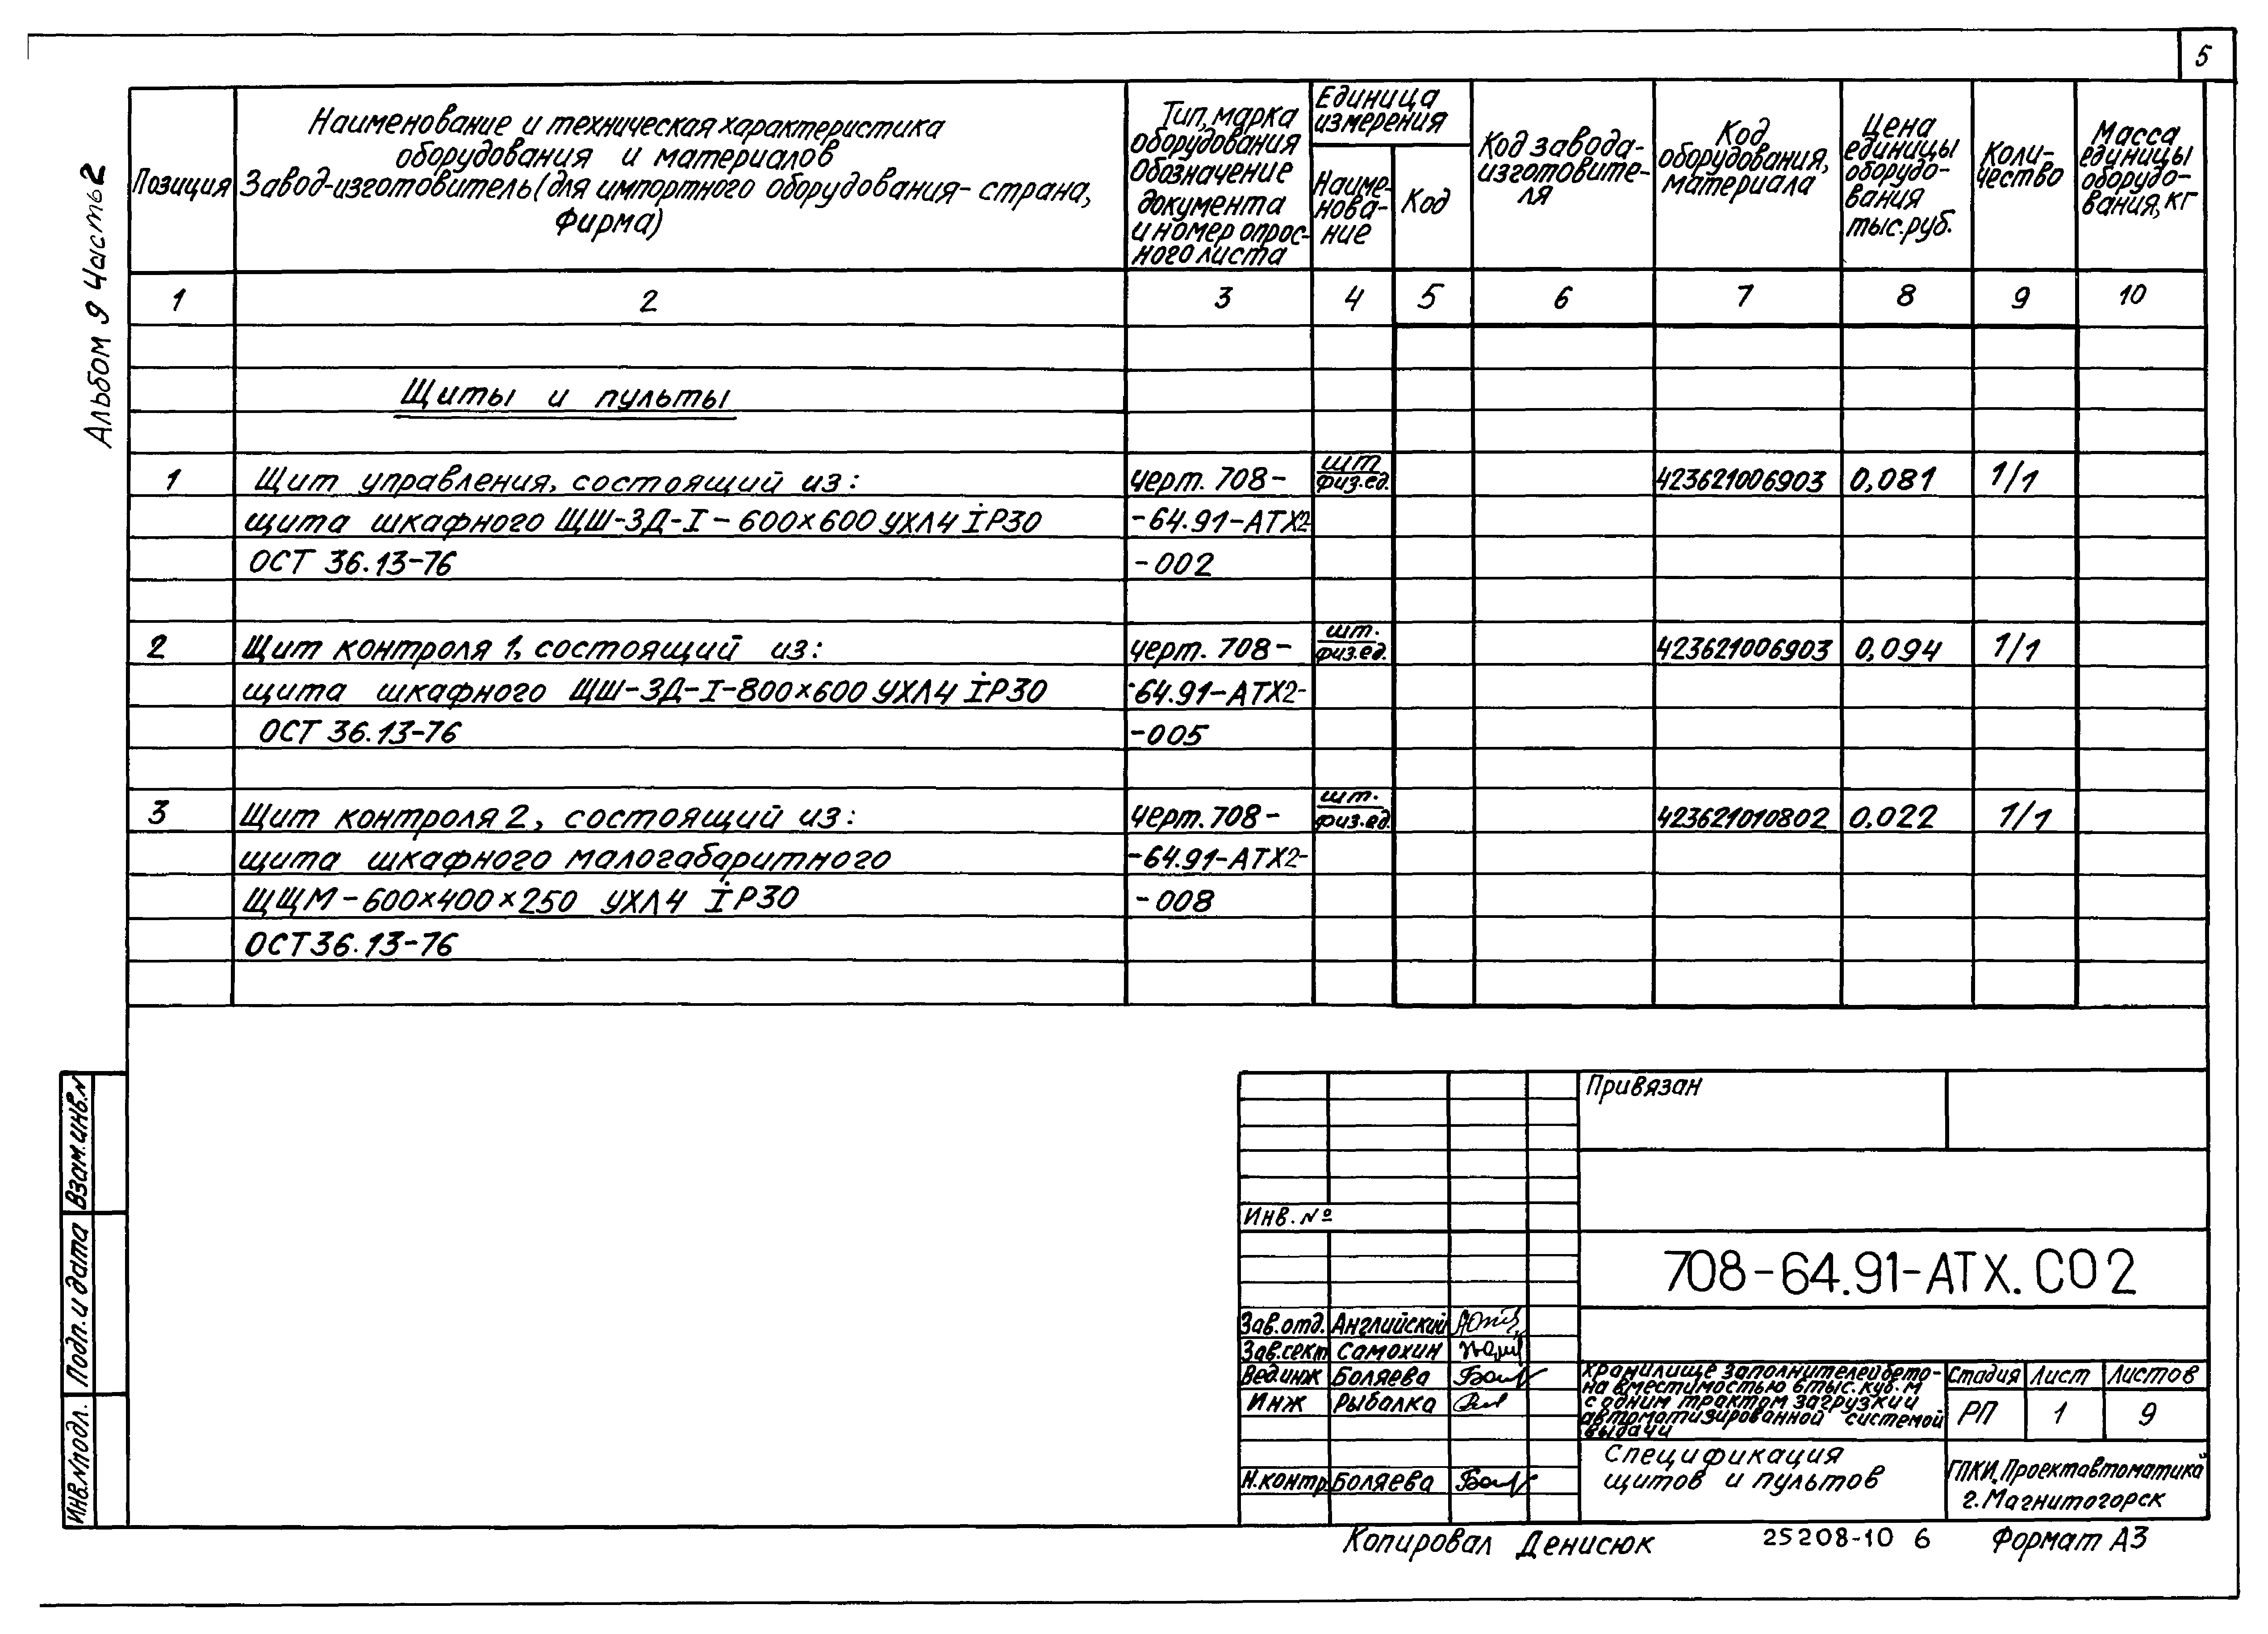 5
Альбом 9 Часть 2
Позиция
Наименование и техническая характеристика
оборудования и материалов
Завод-изготовитель (для импортного оборудования- страна,
фирма)
Тип, марка
оборудования
Обозначение
документа
и номер опрос-
ного листа
Единица
измерения
Наиме-
нова-
ние
Код
Код завода-
изготовите-
ля
Код
оборудования,
материала
Цена
единицы
оборудо-
вания
тыс.руб.
Коли-
чество
Масса
единицы
оборудо-
вания, кг
1 2 3 4 5 6 7 8 9 10
Щиты и пульты
1 Щит управления, состоящий из: черт. 708- шт физ.ед. 423621006903 0,081 1/1
щита шкафного ЩШ-ЗД-I-600×600 УХЛ4 IP30 -64.91-АТХ2-
ОСТ 36.13-76 -002
2 Щит контроля 1, состоящий из: черт. 708- шт. физ.ед. 423621006903 0,094 1/1
щита шкафного ЩШ-ЗД-I-800×600 УХЛ4 IP30 -64.91-АТХ2-
ОСТ 36.13-76 -005
3 Щит контроля 2, состоящий из: черт. 708- шт. физ.ед. 423621010802 0,022 1/1
щита шкафного малогабаритного -64.91-АТХ2-
ЩЩМ-600×400×250 УХЛ4 IP30 -008
ОСТ 36.13-76
Взам.инв.N
Подп. и дата
Инв.N подл.
Привязан
Инв. №
708-64.91-АТХ.СО2
Зав.отд. Английский
Зав.сект Самохин
Вед.инж Боляева
Инж Рыбалка
Н.контр Боляева
Хранилище заполнителей бето-
на вместимостью 6 тыс. куб. м
с одним трактом загрузки и
автоматизированной системой
выдачи
Стадия Лист Листов
РП 1 9
Спецификация
щитов и пультов
ГПКИ „Проектавтоматика"
г. Магнитогорск
Копировал Денисюк 25208-10 6 Формат А3